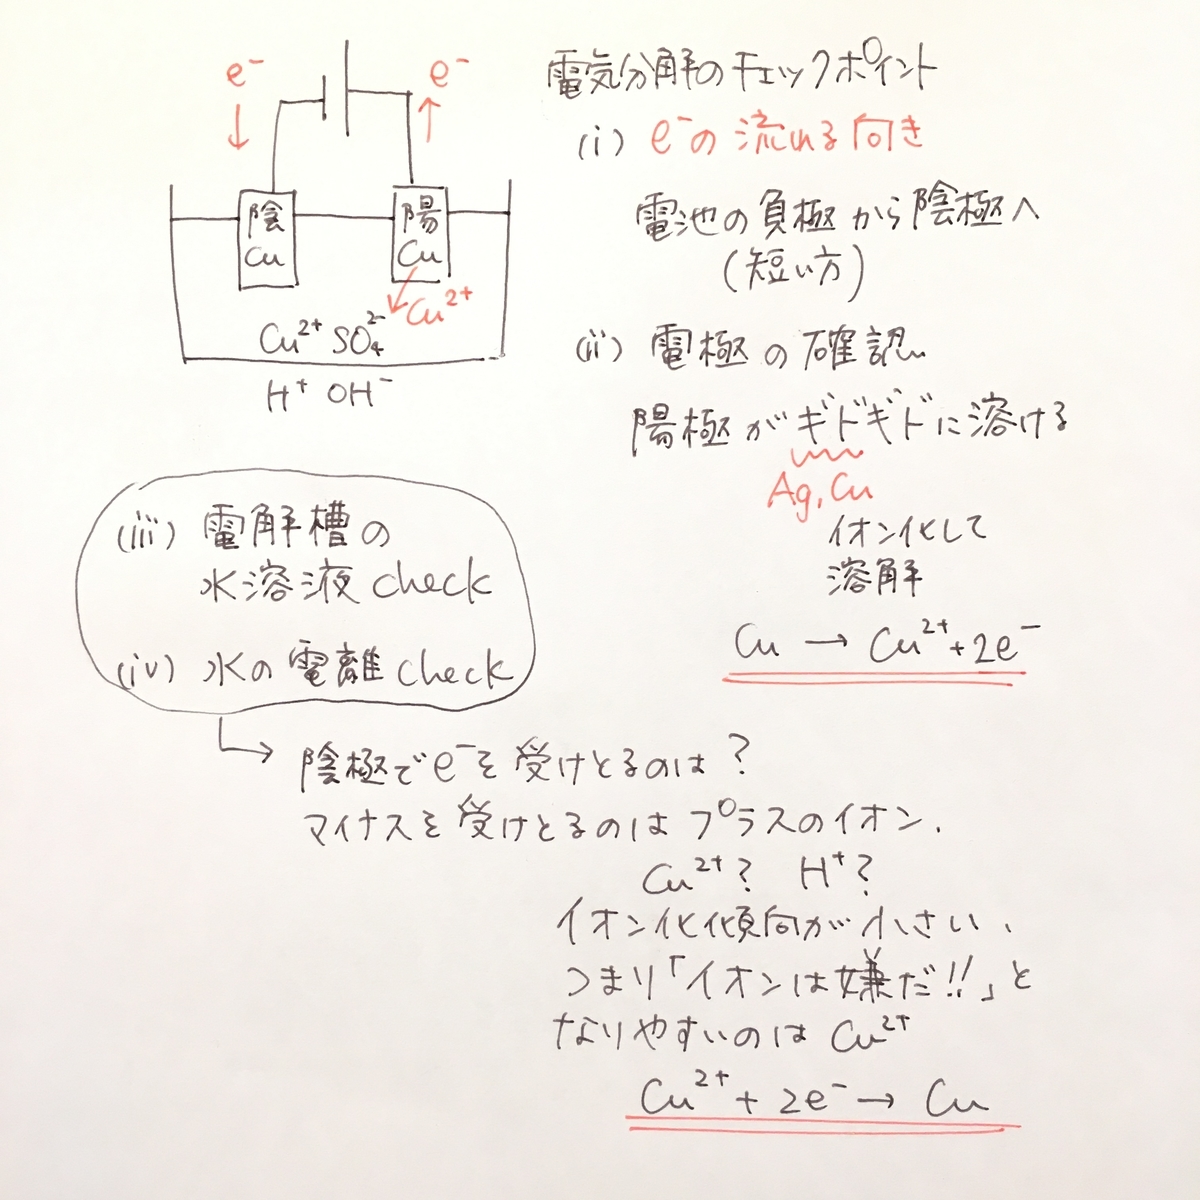 e⁻
e⁻
陰
Cu
陽
Cu
Cu²⁺
Cu²⁺ SO₄²⁻
H⁺ OH⁻
電気分解のチェックポイント
(i) e⁻の流れる向き
電池の負極から陰極へ
(短い方)
(ii) 電極の確認
陽極がギドギドに溶ける
Ag, Cu
イオン化して
溶解
Cu → Cu²⁺+2e⁻
(iii) 電解槽の
水溶液check
(iv) 水の電離check
陰極でe⁻を受けとるのは?
マイナスを受けとるのはプラスのイオン.
Cu²⁺? H⁺?
イオン化傾向が小さい、
つまり「イオンは嫌だ!!」と
なりやすいのは Cu²⁺
Cu²⁺ + 2e⁻ → Cu